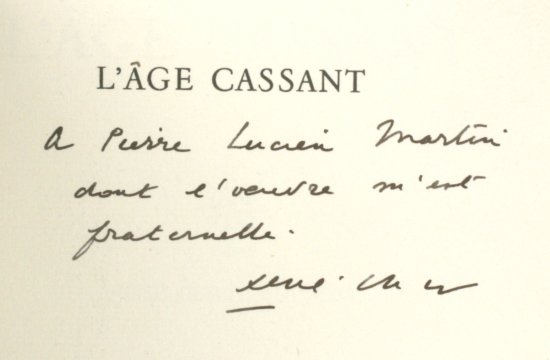 L'ÂGE CASSANT
A Pierre Lucien Martin
dont l'œuvre m'est
fraternelle.
René Char